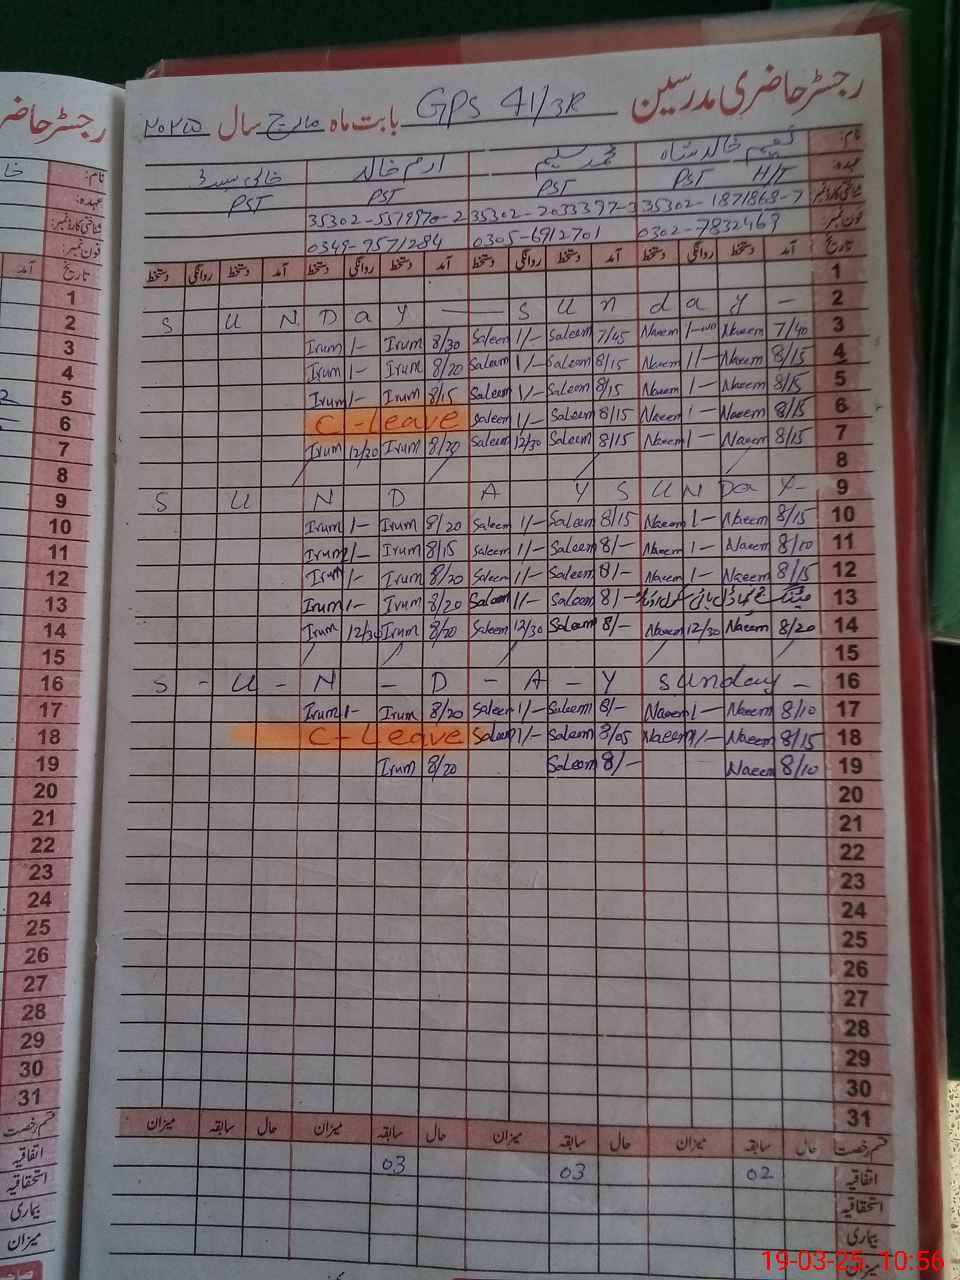 رجسٹر حاضری مدرسین GPS 41/3R بابت ماہ مارچ سال ۲۰۲۵
نام: نعیم خالد شاہ محمد سلیم ارم خالد خالی سیٹ
عہدہ: H/T PST PST PST PST
شناختی کارڈ نمبر 35302-1871868-7 35302-2033397-3 35302-5579970-2
فون نمبر: 0302-7832469 0305-6912701 0349-9571284
تاریخ آمد دستخط روانگی دستخط آمد دستخط روانگی دستخط آمد دستخط روانگی دستخط آمد دستخط روانگی دستخط
1
S U N D a y — S u n d a y - 2
Irum 1/- Irum 8/30 Saleem 1/- Saleem 7/45 Naeem 1- Naeem 7/40 3
Irum 1- Irum 8/20 Saleem 1/- Saleem 8/15 Naeem 1/- Naeem 8/15 4
Irum 1- Irum 8/15 Saleem 1/- Saleem 8/15 Naeem 1- Naeem 8/15 5
C-Leave Saleem 1/- Saleem 8/15 Naeem 1- Naeem 8/15 6
Irum 12/30 Irum 8/20 Saleem 12/30 Saleem 8/15 Naeem 1- Naeem 8/15 7
8
S U N D A Y S U N D a y - 9
Irum 1- Irum 8/20 Saleem 1/- Saleem 8/15 Naeem 1- Naeem 8/15 10
Irum 1- Irum 8/15 Saleem 1/- Saleem 8/- Naeem 1- Naeem 8/10 11
Irum 1- Irum 8/20 Saleem 1/- Saleem 8/- Naeem 1- Naeem 8/15 12
Irum 1- Irum 8/20 Saleem 1/- Saleem 8/- میٹنگ ہائی سکول 13
Irum 12/30 Irum 8/20 Saleem 12/30 Saleem 8/- Naeem 12/30 Naeem 8/20 14
15
S - U - N - D - A - Y Sunday - 16
Irum 1- Irum 8/20 Saleem 1/- Saleem 8/- Naeem 1- Naeem 8/10 17
C-Leave Saleem 1/- Saleem 8/05 Naeem 1/- Naeem 8/15 18
Irum 8/20 Saleem 8/- Naeem 8/10 19
20
21
22
23
24
25
26
27
28
29
30
31
قسم رخصت حال سابقہ میزان حال سابقہ میزان حال سابقہ میزان حال سابقہ میزان
اتفاقیہ 02 03 03
استحقاقیہ
بیماری
میزان
رجسٹر حاضر
نام:
عہدہ:
شناختی کارڈ نمبر
فون نمبر:
تاریخ آمد
1
2
3
4
5
6
7
8
9
10
11
12
13
14
15
16
17
18
19
20
21
22
23
24
25
26
27
28
29
30
31
قسم رخصت
اتفاقیہ
استحقاقیہ
بیماری
میزان
19-03-25 10:56